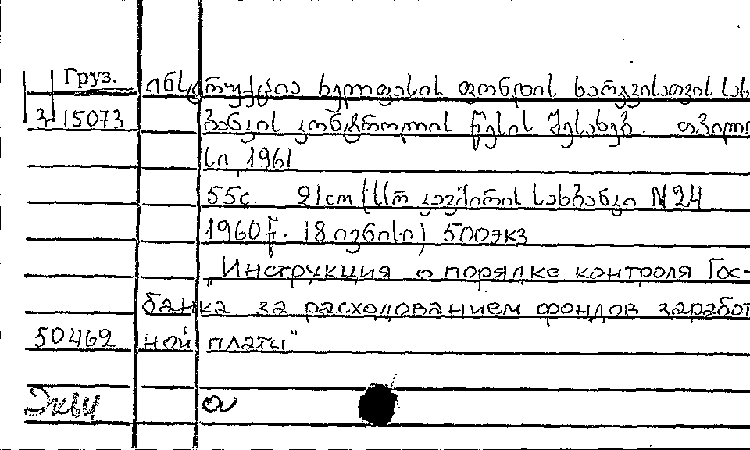 Груз. ინსტრუქცია ხელფასის ფონდის ხარჯვისათვის სახ
3 15073 ბანკის კონტროლის წესის შესახებ. თბილი
სი, 1961
55с 21 cm (სსრ კავშირის სახბანკი N 24
1960 წ. 18 ივნისი) 500 экз
„Инструкция о порядке контроля Гос-
банка за расходованием фондов заработ
50469 ной платы"